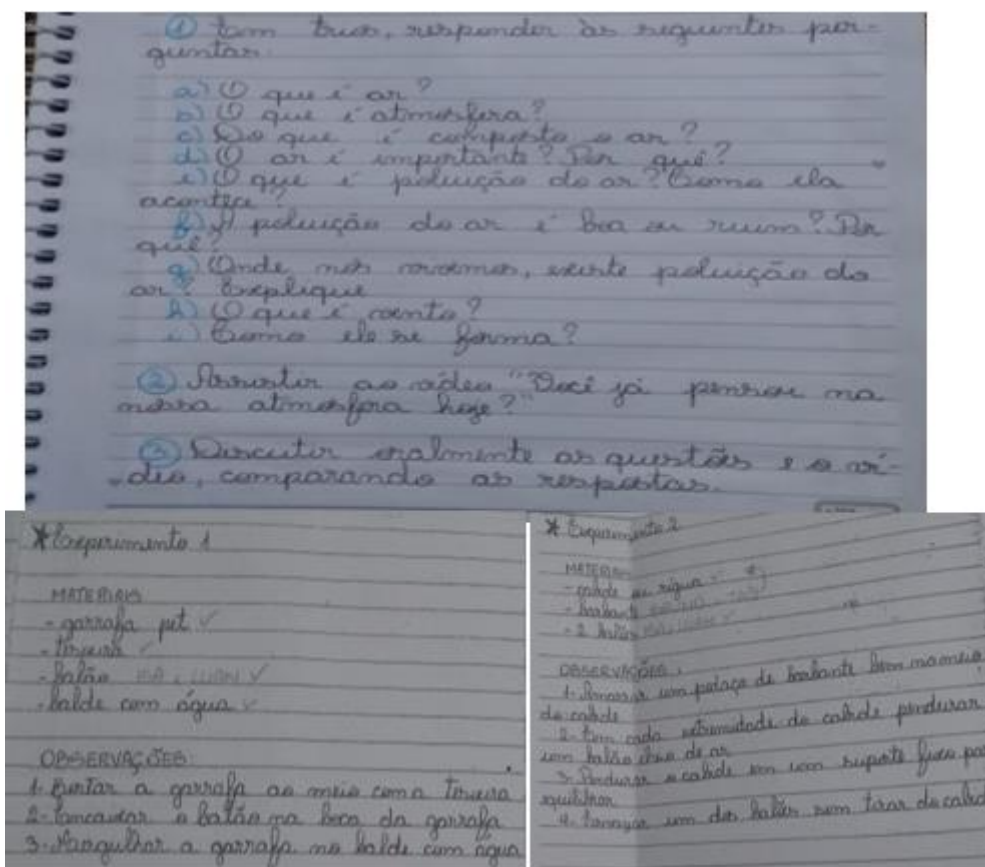 ① Em trios, responder às seguintes per-
guntas:
a) O que é ar?
b) O que é atmosfera?
c) Do que é composto o ar?
d) O ar é importante? Por quê?
e) O que é poluição do ar? Como ela
acontece?
f) A poluição do ar é boa ou ruim? Por
quê?
g) Onde nós vivemos, existe poluição do
ar? Explique
h) O que é vento?
i) Como ele se forma?
② Assistir ao vídeo "Você já pensou na
nossa atmosfera hoje?"
③ Discutir oralmente as questões e o ví-
deo, comparando as respostas.
* Experimento 1
MATERIAIS
- garrafa pet ✓
- tesoura ✓
- balão ISA e LUAN ✓
- balde com água ✓
OBSERVAÇÕES:
1. Cortar a garrafa ao meio com a tesoura
2- Encaixar o balão na boca da garrafa
3- Mergulhar a garrafa no balde com água
* Experimento 2
MATERIAIS
- cabide ou régua
- barbante
- 2 balões
OBSERVAÇÕES:
1- Amarrar um pedaço de barbante bem no meio
do cabide
2- Em cada extremidade do cabide pendurar
um balão cheio de ar
3- Pendurar o cabide em um suporte fixo
equilibrar
4. um dos balões sem tirar do